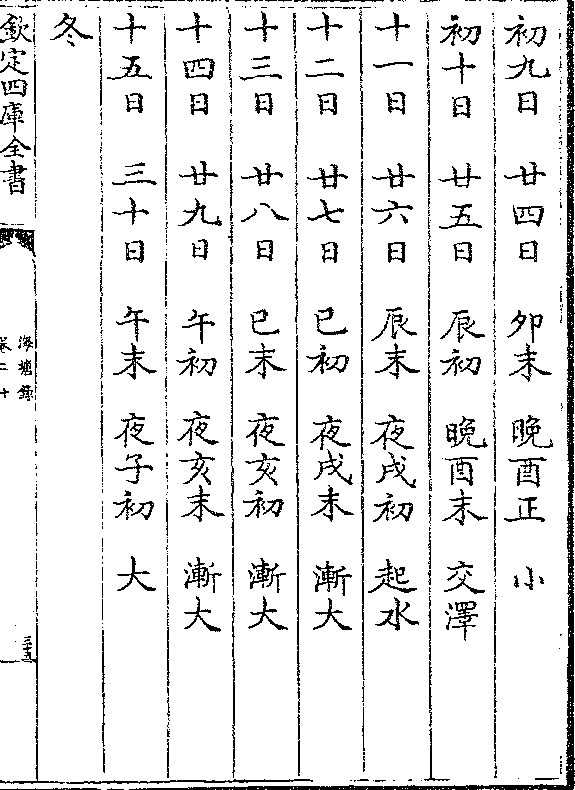 初九日 廿四日 卯末 晚酉正 小
初十日 廿五日 辰初 晚酉末 交澤
十一日 廿六日 辰末 夜戌初 起水
十二日 廿七日 巳初 夜戌末 漸大
十三日 廿八日 巳末 夜亥初 漸大
十四日 廿九日 午初 夜亥末 漸大
十五日 三十日 午末 夜子初 大
冬
欽定四庫全書
海塘錄
卷二十
三十五